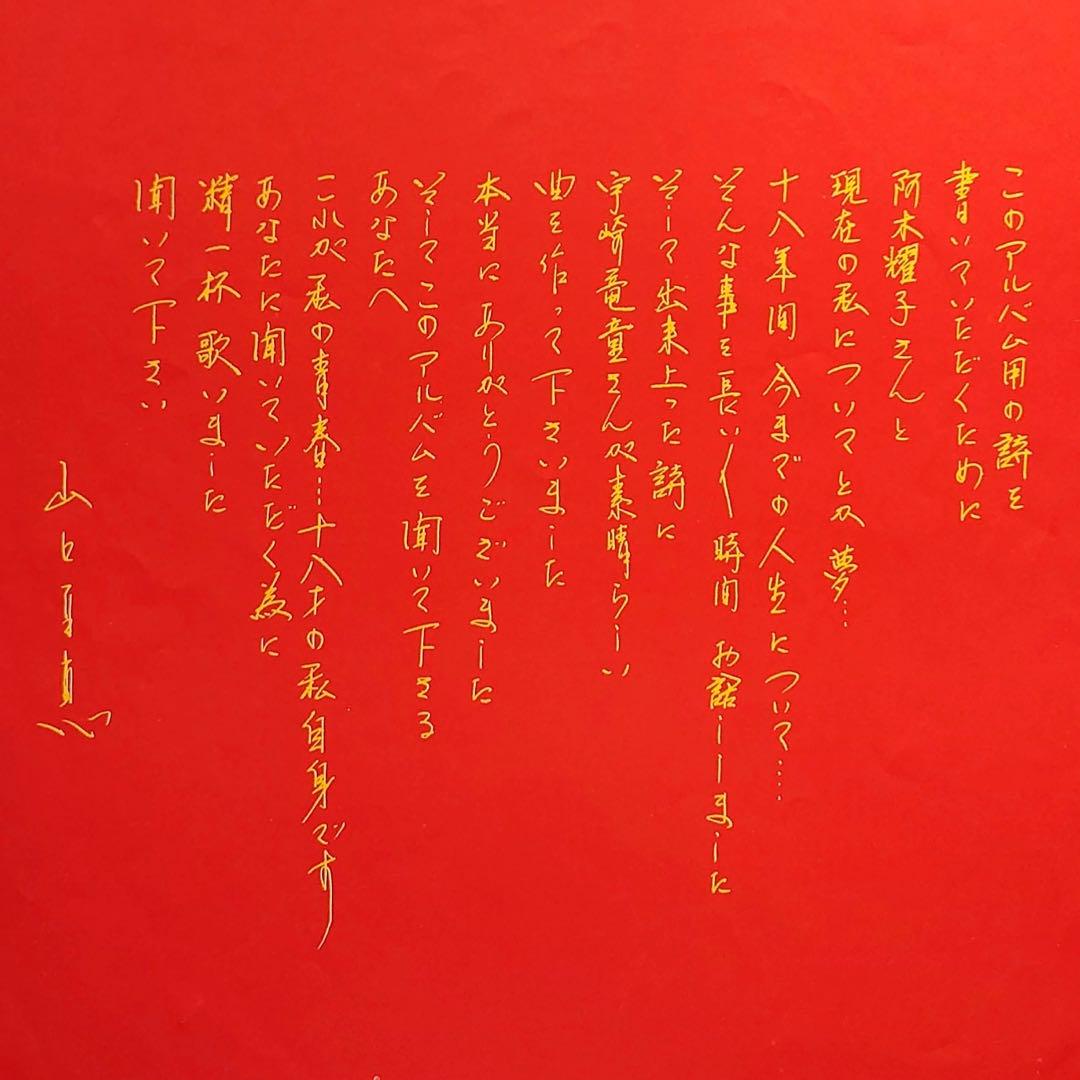 このアルバム用の詩を
書いていただくために
阿木耀子さんと
現在の私についてとか 夢…
十八年間 今までの人生について……
そんな事を長い〱時間 お話ししました
そして出来上った詩に
宇崎竜童さんが素晴らしい
曲を作って下さいました
本当に ありがとうございました
そしてこのアルバムを 聞いて下さる
あなたへ
これが私の青春…十八才の私自身です
あなたに聞いていただく為に
精一杯 歌いました
聞いて下さい
山口百恵